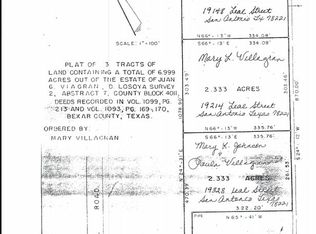 19148 Leal Street
San Antonio Tx 78221
N66°-13'W 334.08'
SCALE: 1"=100'
N66°-13'W 334.08'
PLAT OF 3 TRACTS OF
LAND CONTAINING A TOTAL OF 6.999
ACRES OUT OF THE ESTATE OF JUAN
G. VIAGRAN, D. LOSOYA SURVEY
2, ABSTRACT 7, COUNTY BLOCK 4011,
DEEDS RECORDED IN VOL. 1099, PG.
213 AND VOL. 1093, PG. 169, 170,
BEXAR COUNTY, TEXAS.
ORDERED BY:
MARY VILLAGRAN
Mary L. Villagran
2.333 ACRES
19214 Leal Street
San Antonio Texas
78221
N66°-13'W 335.76'
N66°-13'W 335.76'
Mary K. Johnson
Paula Villagran
2.333 ACRES
19228 Leal Street
San Antonio Texas
78221
322.20'
N65°-41'W
ROAD